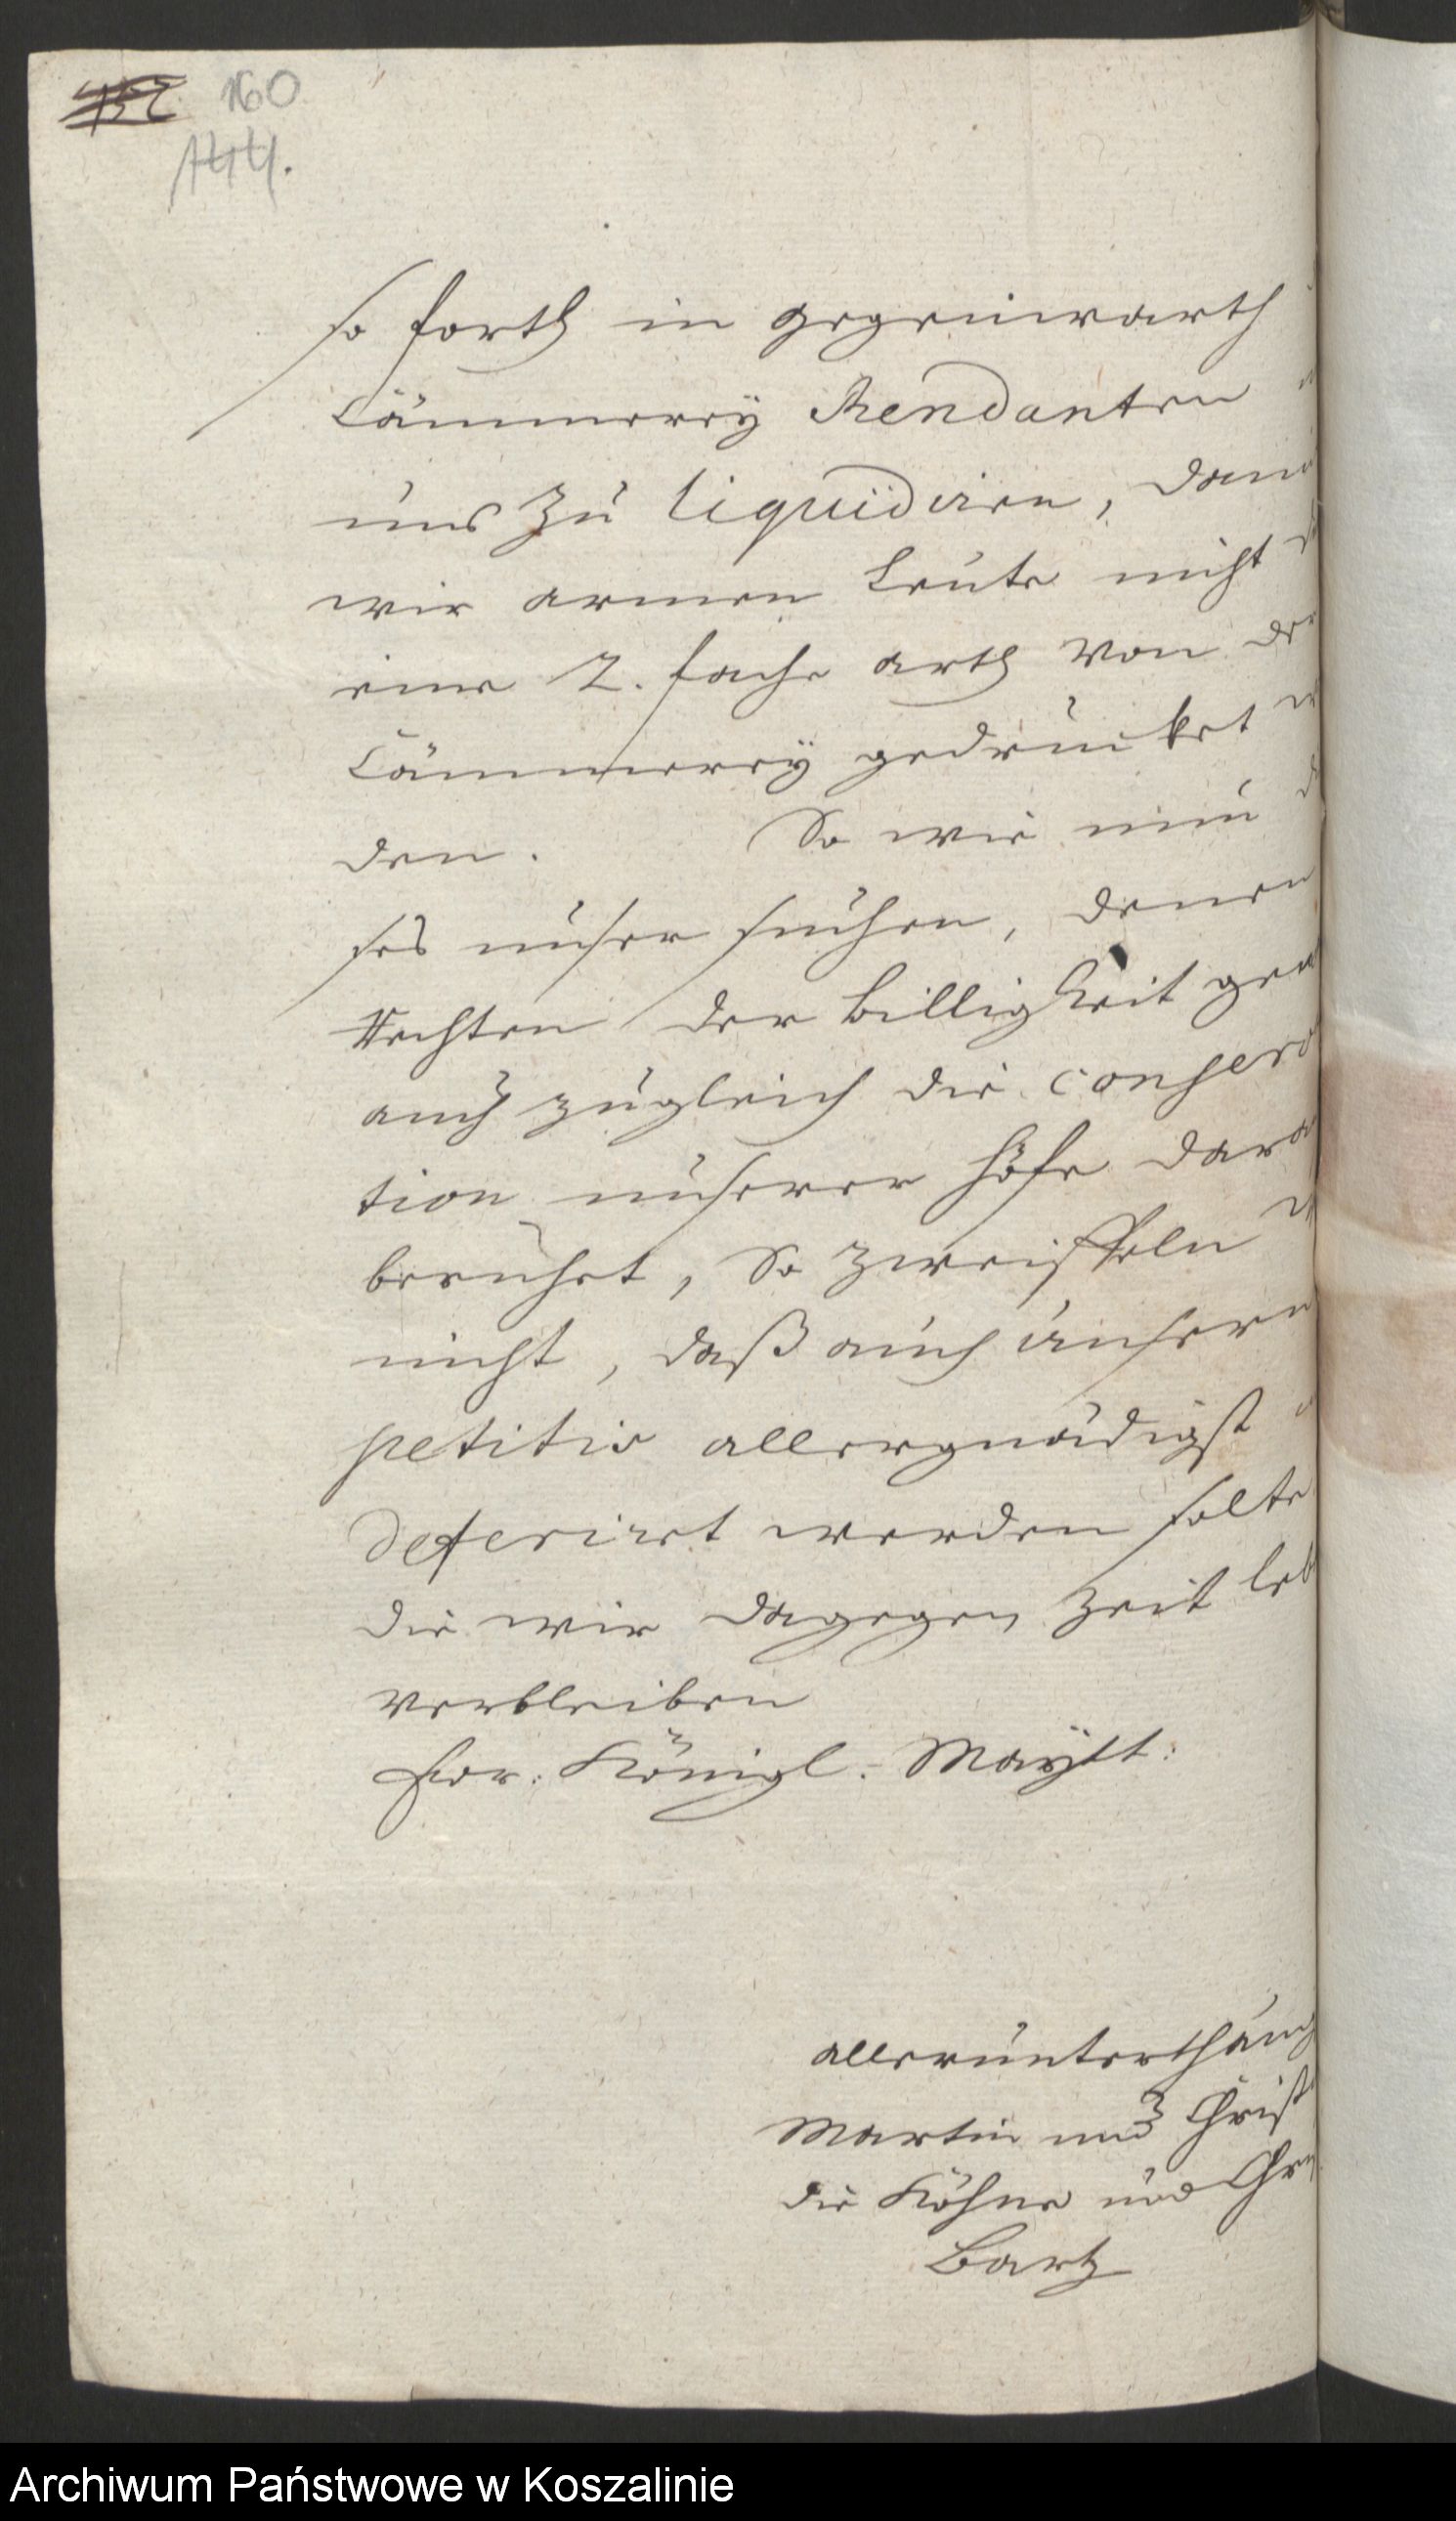 160
144.
so forth in gegenwarth
Cämmerey Rendanten
uns zu liquidiren, dam
wir armen Leute nicht
eine 2. fache arth von der
Cämmerey gedrücket
den. So wie nun
ses unser suchen, denen
Rechten der Billigkeit gem
auch zugleich die conserva
tion unserer Höfe dara
beruhet, So zweiffeln
nicht, daß auch unserm
petitio allergnädigst
deferiret werden solte
die wir dagegen Zeit leb
verbleiben
Ewr: Königl. Maytt:
allerunterthänig
Martin und Christ
die Köhne und Chr
Bartz
Archiwum Państwowe w Koszalinie